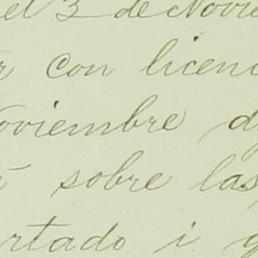 el 3 de Novie
r con licenc
oviembre d
sobre las
rtado i g